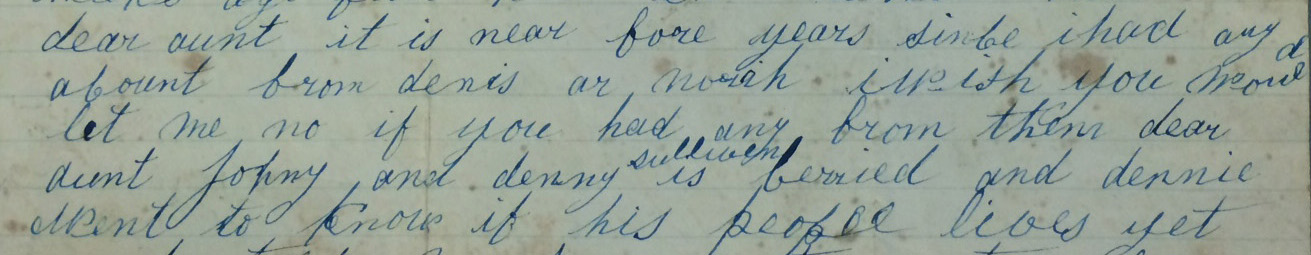 dear aunt it is near fore years sinbe ihad any
abount brom denis ar norah i wish you would
let me no if you had any brom them dear
aunt Johny and denny sulliven is berried and dennie
went to know if his people lives yet